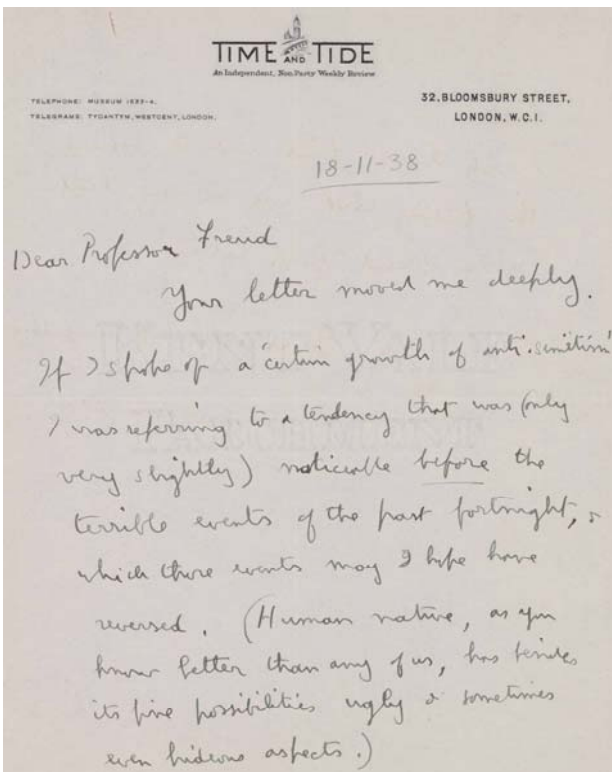 TIME AND TIDE
An Independent, Non-Party Weekly Review
TELEPHONE: MUSEUM 1633-4.
TELEGRAMS: TYDANTYM, WESTCENT, LONDON.
32, BLOOMSBURY STREET,
LONDON, W.C.1.
18-11-38
Dear Professor Freud
Your letter moved me deeply.
If I spoke of a 'certain growth of anti-semitism'
I was referring to a tendency that was (only
very slightly) noticeable before the
terrible events of the past fortnight, &
which those events may I hope have
reversed. (Human nature, as you
know better than any of us, has besides
its fine possibilities ugly & sometimes
even hideous aspects.)